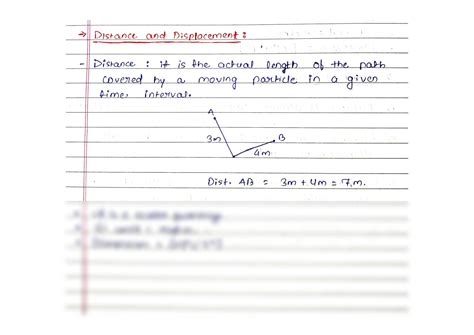 → Distance and Displacement :
- Distance : it is the actual length of the path
covered by a moving particle in a given
time, interval.
A
3m
B
4m
Dist. AB = 3m + 4m = 7m.